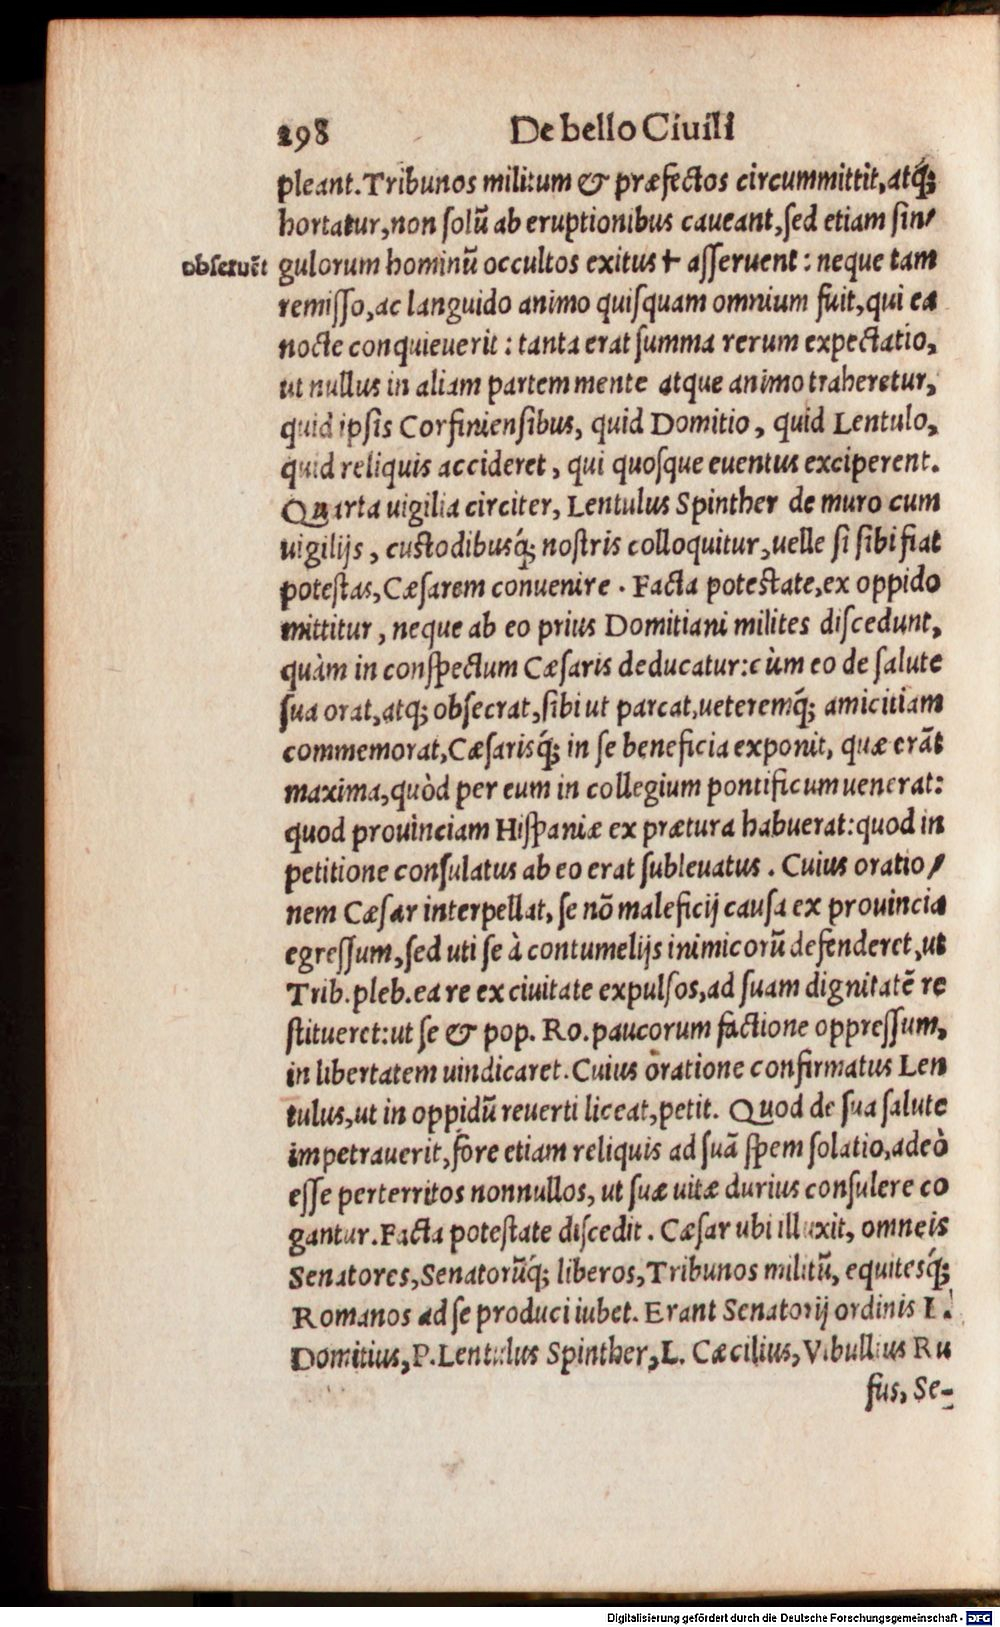 298 De bello Ciuili
pleant. Tribunos militum & præfectos circummittit, atq́;
hortatur, non solũ ab eruptionibus caueant, sed etiam sin/
obseruẽt gulorum hominũ occultos exitus † asseruent : neque tam
remisso, ac languido animo quisquam omnium fuit, qui ea
nocte conquieuerit : tanta erat summa rerum expectatio,
ut nullus in aliam partem mente atque animo traheretur,
quid ipsis Corfiniensibus, quid Domitio, quid Lentulo,
quid reliquis accideret, qui quosque euentus exciperent.
Quarta uigilia circiter, Lentulus Spinther de muro cum
uigilijs, custodibusq́; nostris colloquitur, uelle si sibi fiat
potestas, Cæsarem conuenire . Facta potestate, ex oppido
mittitur, neque ab eo prius Domitiani milites discedunt,
quàm in conspectum Cæsaris deducatur: cùm eo de salute
sua orat, atq; obsecrat, sibi ut parcat, ueteremq́; amicitiam
commemorat, Cæsarisq́; in se beneficia exponit, quæ erãt
maxima, quòd per eum in collegium pontificum uenerat:
quod prouinciam Hispaniæ ex prætura habuerat: quod in
petitione consulatus ab eo erat subleuatus . Cuius oratio/
nem Cæsar interpellat, se nõ maleficij causa ex prouincia
egressum, sed uti se à contumelijs inimicorũ defenderet, ut
Trib. pleb. ea re ex ciuitate expulsos, ad suam dignitatẽ re
stitueret: ut se & pop. Ro. paucorum factione oppressum,
in libertatem uindicaret. Cuius oratione confirmatus Len
tulus, ut in oppidũ reuerti liceat, petit. Quod de sua salute
impetrauerit, fore etiam reliquis ad suã spem solatio, adeò
esse perterritos nonnullos, ut suæ uitæ durius consulere co
gantur. Facta potestate discedit . Cæsar ubi illuxit, omneis
Senatores, Senatorũq́; liberos, Tribunos militũ, equitesq́;
Romanos ad se produci iubet. Erant Senatorij ordinis L.
Domitius, P. Lentulus Spinther, L. Cæcilius, Vibullius Ru
fus, Se-
Digitalisierung gefördert durch die Deutsche Forschungsgemeinschaft - DFG